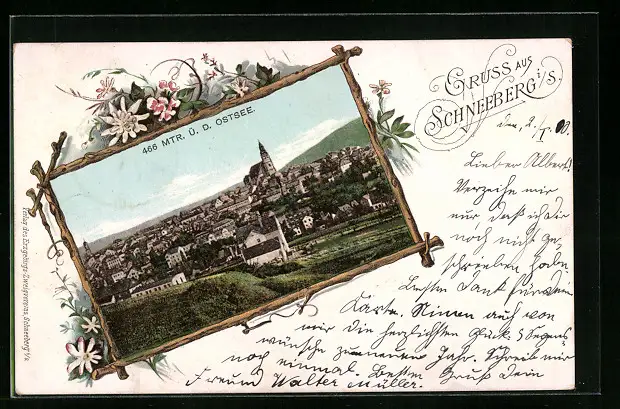 GRUSS AUS
SCHNEEBERG i/S.
466 MTR. Ü. D. OSTSEE.
Verlag des Erzgebirgs-Zweigvereins, Schneeberg i/S.
den, 2./I. 00.
Lieber Albert!
Verzeihe mir
nur daß ich dir
noch nicht ge-
schrieben habe
Besten Dank für dein
Karte. Nimm auch von
mir die herzlichsten Glück- & Segens-
wünsche zum neuen Jahr. Schreib mir
noch einmal. Besten Gruß Dein
Freund Walter Müller.